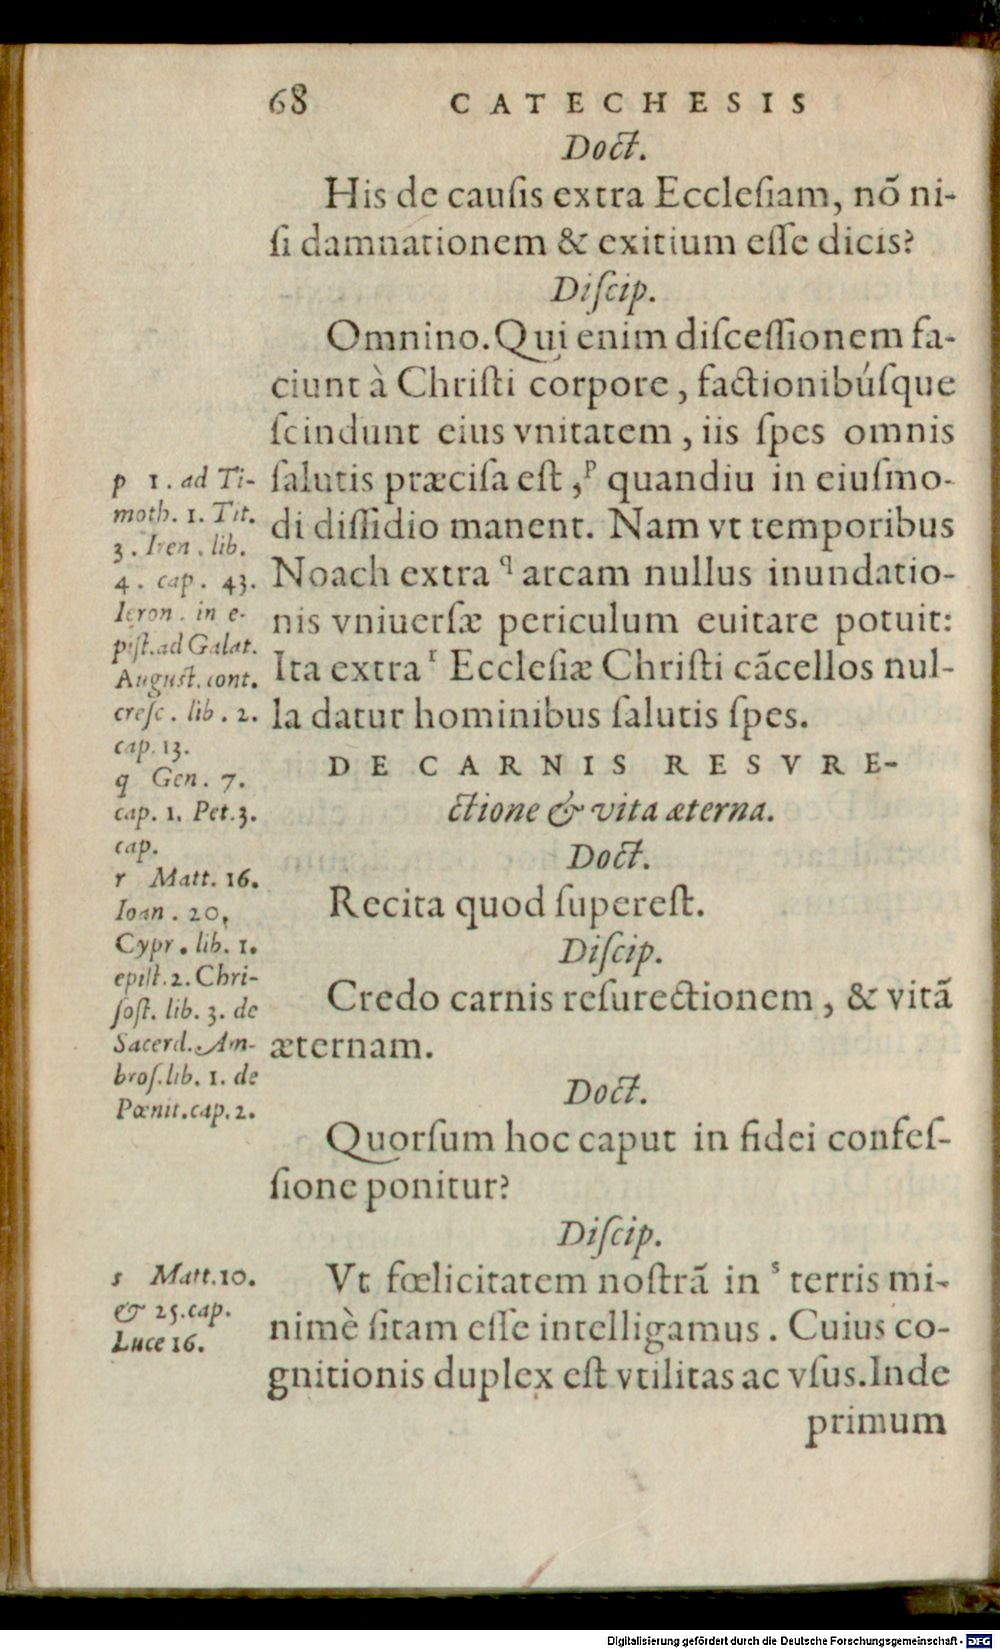 68 CATECHESIS
Doct.
His de cauſis extra Eccleſiam, nõ ni-
ſi damnationem & exitium eſſe dicis?
Diſcip.
Omnino. Qui enim diſceſſionem fa-
ciunt à Chriſti corpore, factionibúſque
ſcindunt eius vnitatem, iis ſpes omnis
ſalutis præciſa eſt, p quandiu in eiuſmo-
di diſſidio manent. Nam vt temporibus
Noach extra q arcam nullus inundatio-
nis vniuerſæ periculum euitare potuit:
Ita extra r Eccleſiæ Chriſti cãcellos nul-
la datur hominibus ſalutis ſpes.
DE CARNIS RESVRE-
ctione & vita æterna.
Doct.
Recita quod ſupereſt.
Diſcip.
Credo carnis reſurectionem, & vitã
æternam.
Doct.
Quorſum hoc caput in fidei confeſ-
ſione ponitur?
Diſcip.
Vt fœlicitatem noſtrã in s terris mi-
nimè ſitam eſſe intelligamus. Cuius co-
gnitionis duplex eſt vtilitas ac vſus. Inde
primum
p 1. ad Ti-
moth. 1. Tit.
3. Iren. lib.
4. cap. 43.
Ieron. in e-
piſt. ad Galat.
Auguſt. cont.
creſc. lib. 2.
cap. 13.
q Gen. 7.
cap. 1. Pet. 3.
cap.
r Matt. 16.
Ioan. 20,
Cypr. lib. 1.
epiſt. 2. Chri-
ſoſt. lib. 3. de
Sacerd. Am-
broſ. lib. 1. de
Pœnit. cap. 2.
s Matt. 10.
& 25. cap.
Luce 16.
Digitalisierung gefördert durch die Deutsche Forschungsgemeinschaft - DFG